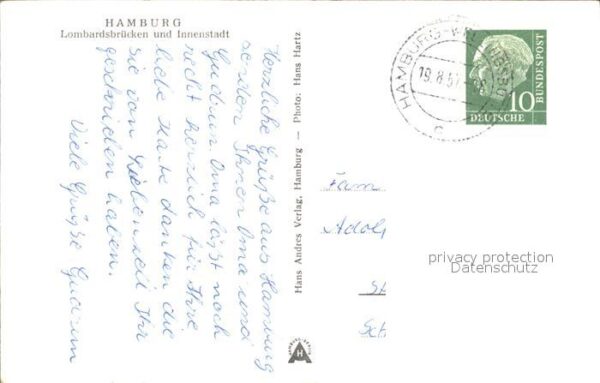 HAMBURG
Lombardsbrücken und Innenstadt
Herzliche Grüße aus Hamburg
senden Ihnen Oma und
Gudrun. Oma läßt noch
recht herzlich für Ihre
liebe Karte danken die
Sie von Liebenzell Ihr
geschrieben haben.
Viele Grüße Gudrun
Hans Andres Verlag, Hamburg — Photo: Hans Hartz
HAMBURG
19.8.57
c
10
DEUTSCHE
BUNDESPOST
Fam
Adol
St
Sch
privacy protection
Datenschutz
H